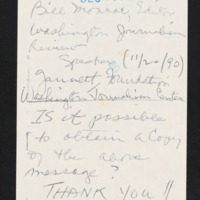 Bill Monroe, Editor
Washington Journalism
Review
Speaker (11/2-/90)
Gannett Foundation
Washington Journalism Center
IS it possible
to obtain a Copy
of the above
message?
THANK YOU!!